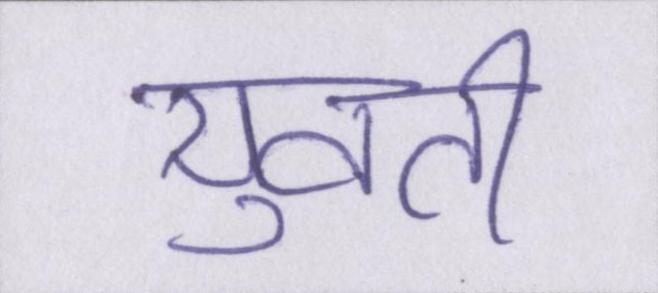 युवती